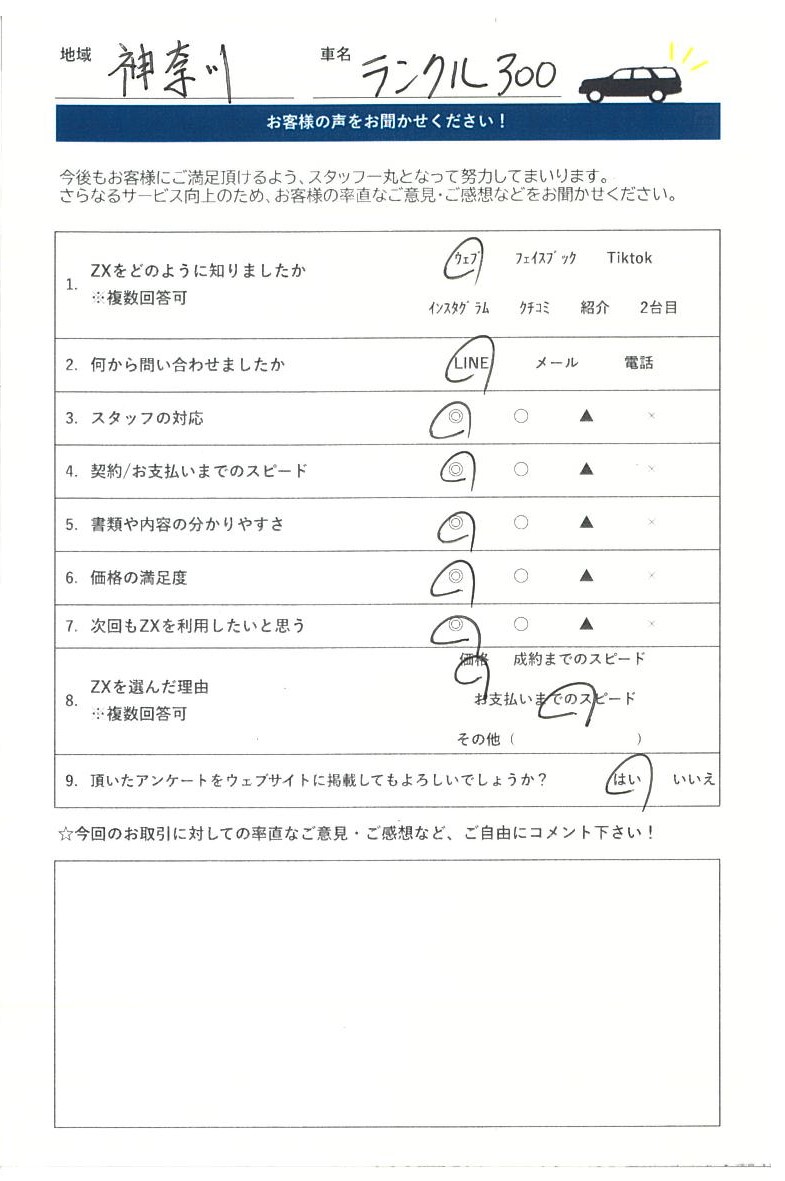 地域 神奈川 車名 ランクル300
お客様の声をお聞かせください！
今後もお客様にご満足頂けるよう、スタッフ一丸となって努力してまいります。
さらなるサービス向上のため、お客様の率直なご意見・ご感想などをお聞かせください。
1. ZXをどのように知りましたか
※複数回答可
ウェブ フェイスブック Tiktok
インスタグラム クチコミ 紹介 2台目
2. 何から問い合わせましたか LINE メール 電話
3. スタッフの対応 ◎ ○ ▲ ×
4. 契約/お支払いまでのスピード ◎ ○ ▲ ×
5. 書類や内容の分かりやすさ ◎ ○ ▲ ×
6. 価格の満足度 ◎ ○ ▲ ×
7. 次回もZXを利用したいと思う ◎ ○ ▲ ×
8. ZXを選んだ理由
※複数回答可
価格 成約までのスピード
お支払いまでのスピード
その他（ ）
9. 頂いたアンケートをウェブサイトに掲載してもよろしいでしょうか？ はい いいえ
☆今回のお取引に対しての率直なご意見・ご感想など、ご自由にコメント下さい！